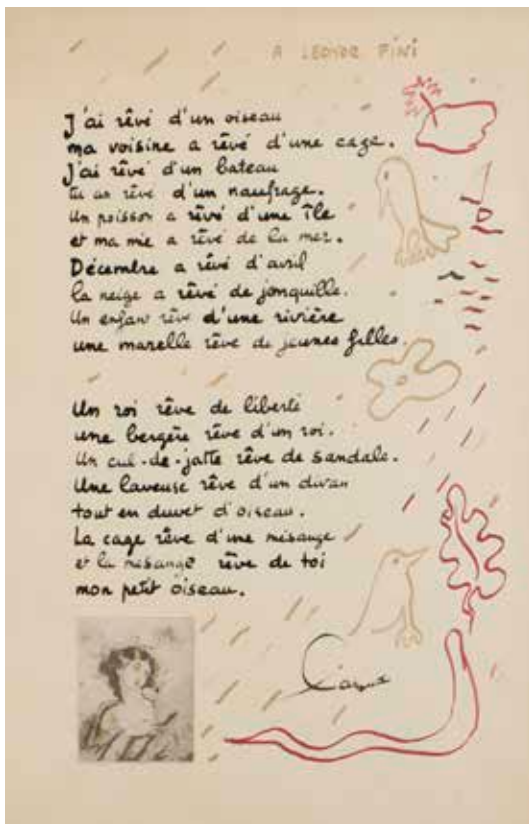 A LEONOR FINI
J'ai rêvé d'un oiseau
ma voisine a rêvé d'une cage.
J'ai rêvé d'un bateau
tu as rêvé d'un naufrage.
Un poisson a rêvé d'une île
et ma mie a rêvé de la mer.
Décembre a rêvé d'avril
la neige a rêvé de jonquille.
Un enfant rêve d'une rivière
une marelle rêve de jeunes filles.
Un roi rêve de liberté
une bergère rêve d'un roi.
Un cul-de-jatte rêve de sandale.
Une laveuse rêve d'un divan
tout en duvet d'oiseau.
La cage rêve d'une mésange
et la mésange rêve de toi
mon petit oiseau.